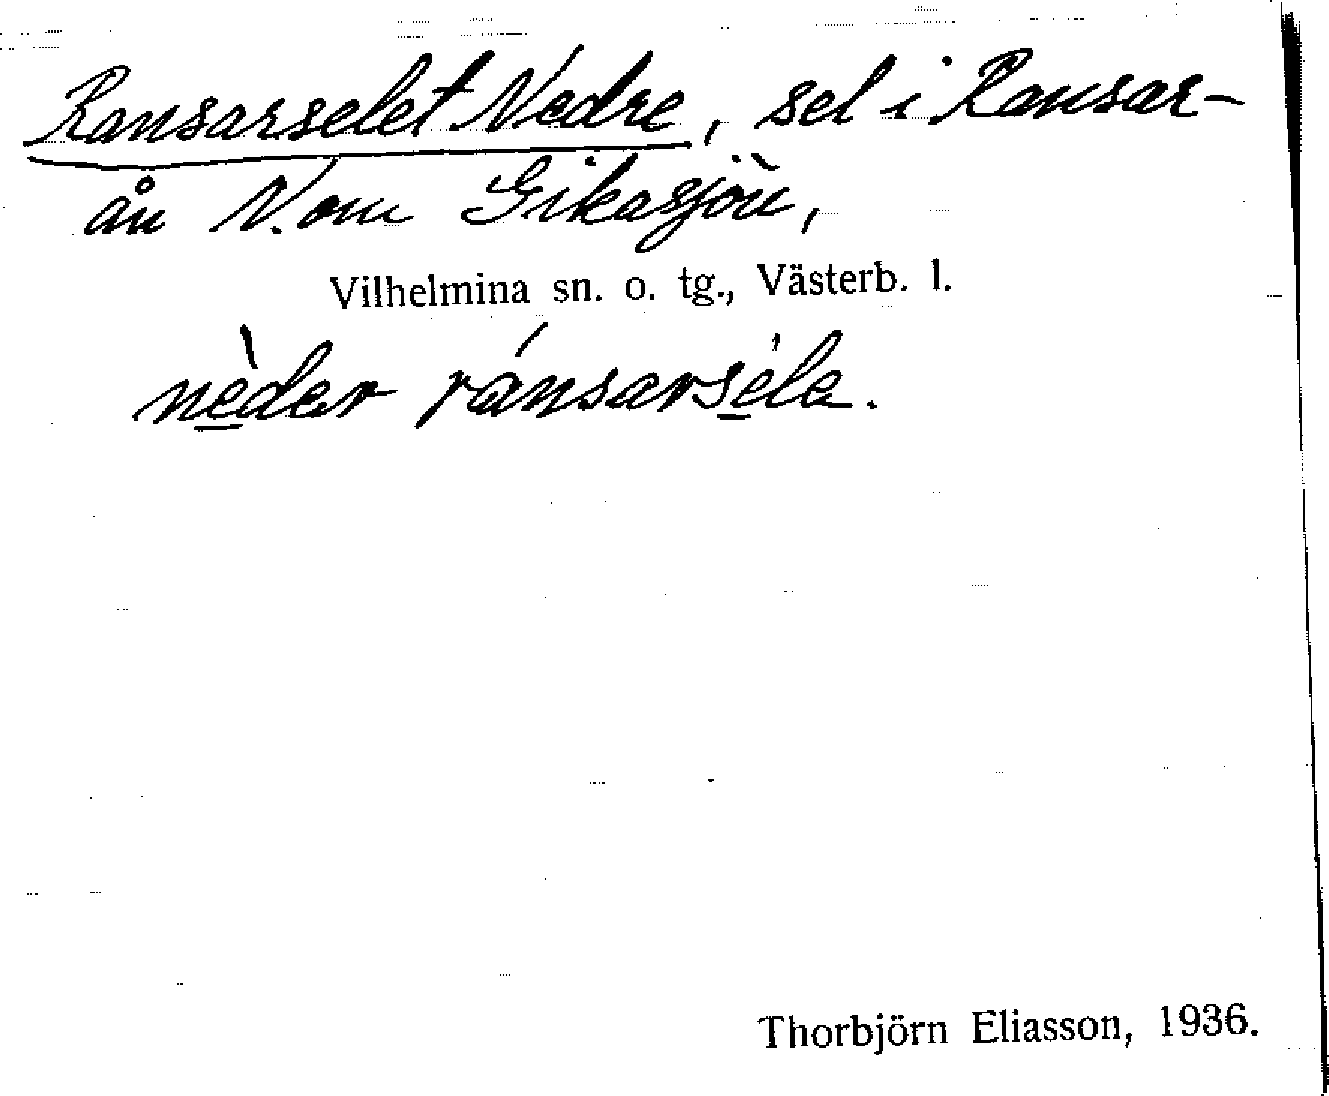 Ransarselet Nedre, sel i Ransar-
ån N. om Gikasjön,
Vilhelmina sn. o. tg., Västerb. l.
nèder ránsarséla.
Thorbjörn Eliasson, 1936.